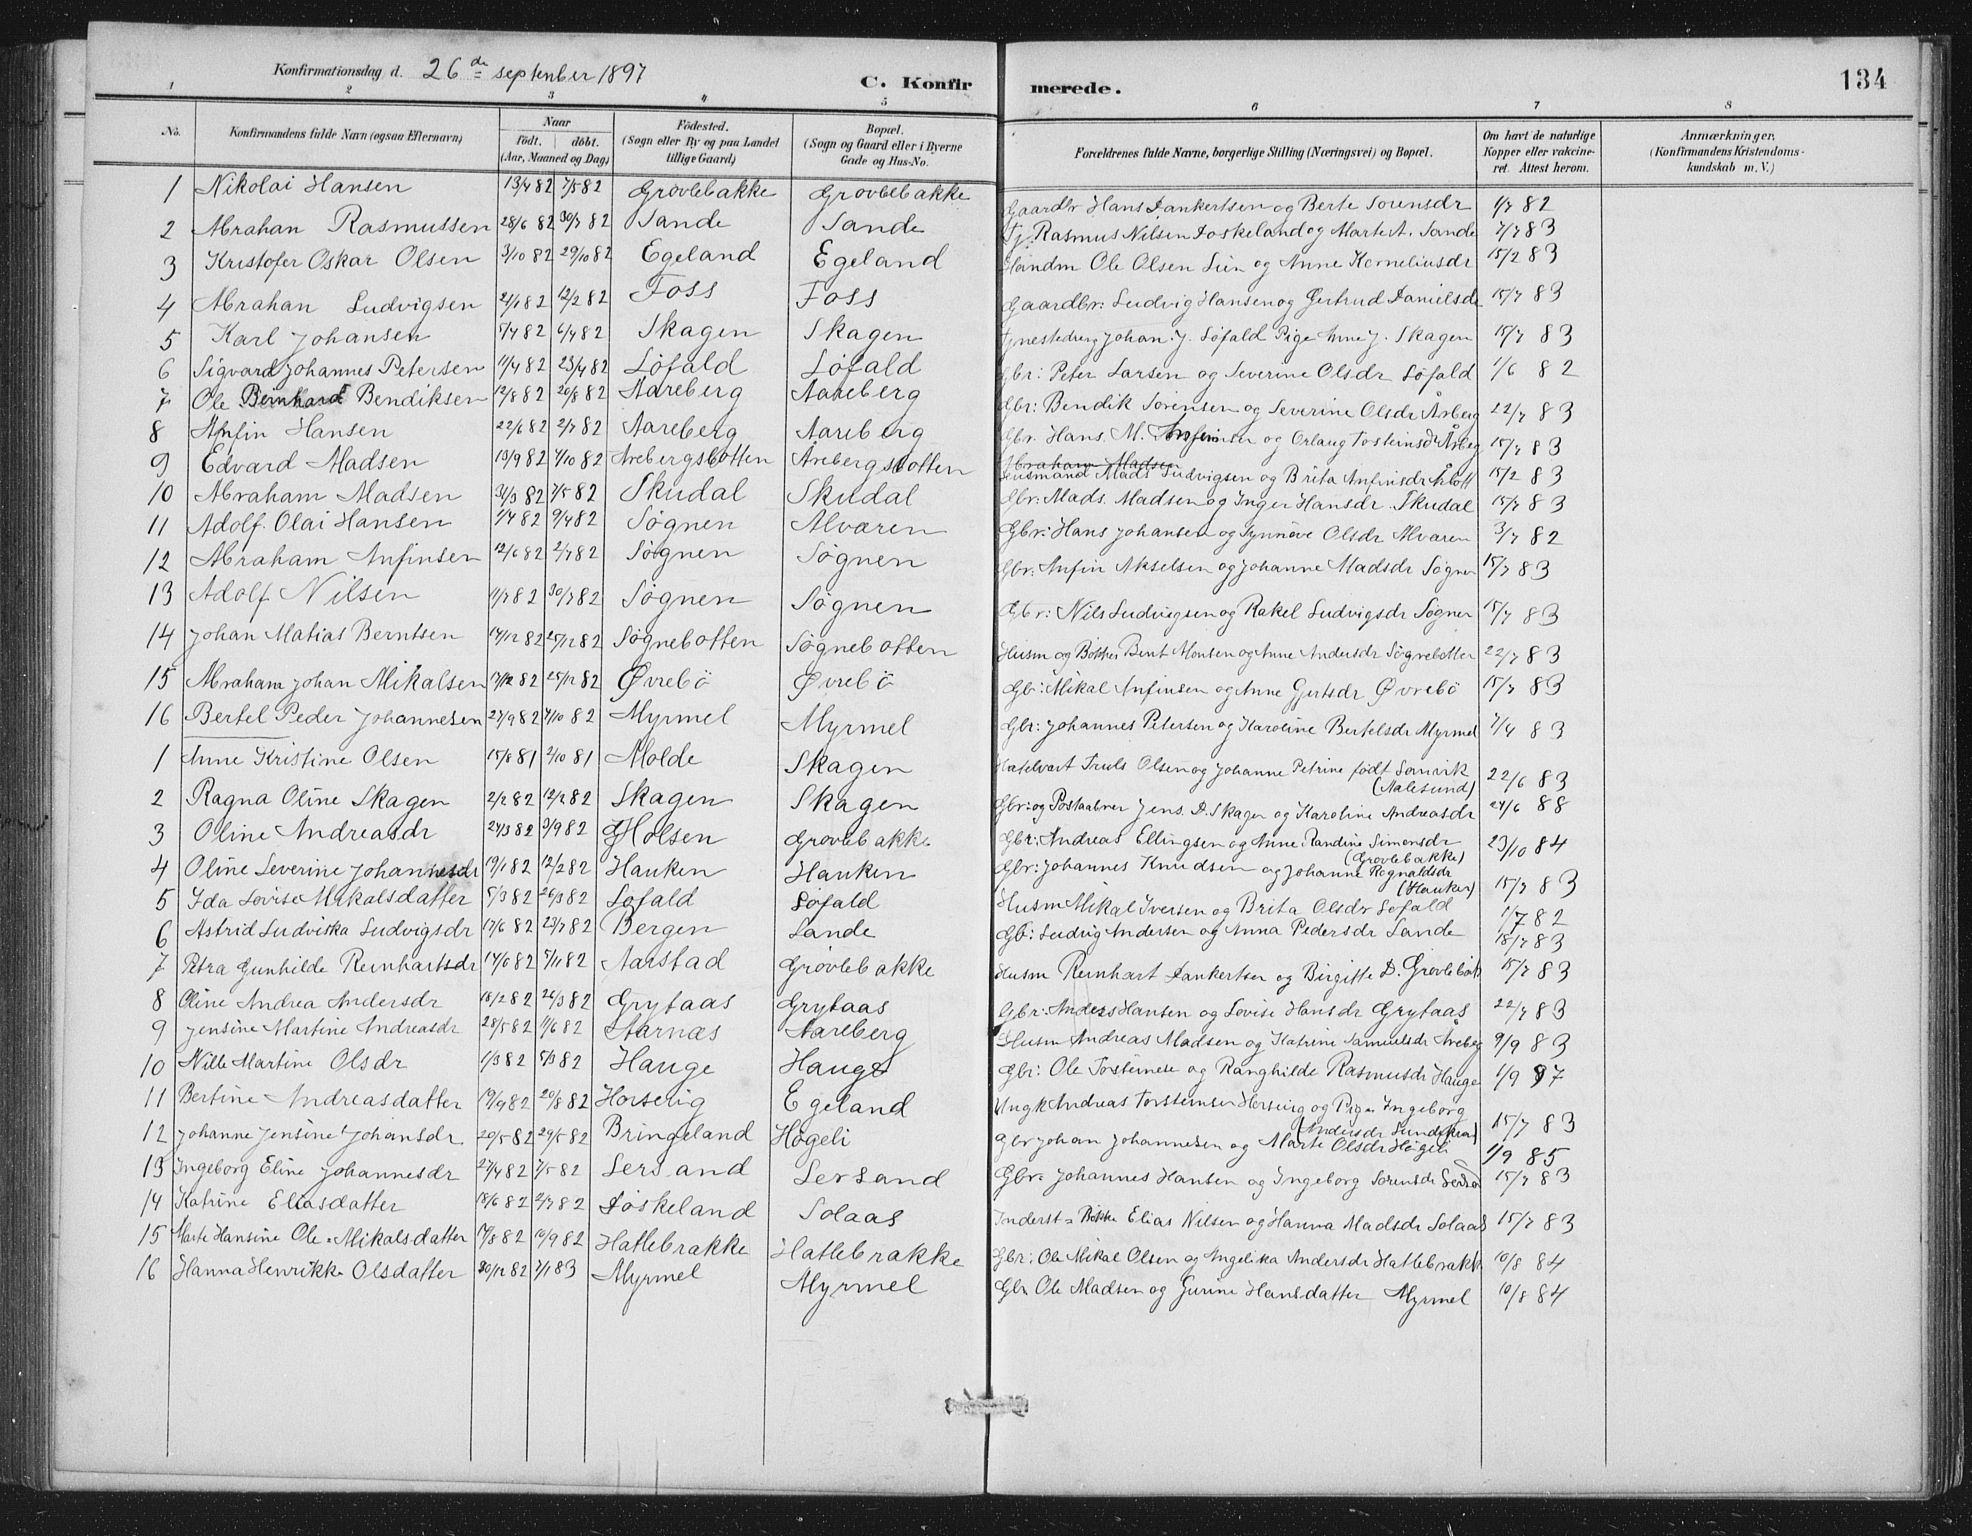 134
Konfirmationsdag d. 26de september 1897 C. Konfirmerede.
1 2 3 4 5 6 7 8
No. Konfirmandens fulde Navn (ogsaa Efternavn) Naar födt. döbt. (Aar, Maaned og Dag) Födested. (Sogn eller By og paa Landet tillige Gaard) Bopæl. (Sogn og Gaard eller i Byerne Gade og Hus-No. Forældrenes fulde Navne, borgerlige Stilling (Næringsvei) og Bopæl. Om havt de naturlige Kopper eller vakcineret. Attest herom. Anmærkninger. (Konfirmandens Kristendomskundskab m. V.)
1 Nikolai Hansen 13/4 82 7/5 82 Grovlebakke Grovlebakke Gaardbr Hans Dankertsen og Berte Sorensdr 1/7 82
2 Abrahan Rasmussen 28/6 82 30/7 82 Sande Sande Tj. Rasmus Nilsen Doskeland og Marte A. Sande 7/7 83
3 Kristofer Oskar Olsen 3/10 82 29/10 82 Egeland Egeland Handm Ole Olsen Lien og Anne Korneliusdr 15/2 83
4 Abrahan Ludvigsen 21/1 82 12/2 82 Foss Foss Gaardbr: Ludvig Hansen og Gertrud Danielsdr 15/7 83
5 Karl Johansen 5/4 82 6/4 82 Skagen Skagen Tjenestedreng Johan J. Søfald Pige Anne J. Skagen 15/7 83
6 Sigvard Johannes Petersen 11/4 82 23/4 82 Løfald Løfald Gbr: Peter Larsen og Severine Olsdr Løfald 1/6 82
7 Ole Bernhard Bendiksen 12/8 82 20/8 82 Aareberg Aareberg Gbr: Bendik Sorensen og Severine Olsdr Årberg 22/7 83
8 Anfin Hansen 22/6 82 2/7 82 Aareberg Aareberg Gbr. Hans. M. Anfinsen og Orlaug Tosteinsdr Årberg 15/7 83
9 Edvard Madsen 13/9 82 1/10 82 Arebergsbotten Arebergsbotten Abraham Madsen Husmand Mads Ludvigsen og Brita Anfinsdr Årbott 15/2 83
10 Abraham Madsen 31/3 82 7/5 82 Skudal Skudal Gbr: Mads. Madsen og Inger Hansdr. Skudal 15/7 83
11 Adolf Olai Hansen 1/4 82 9/4 82 Søgnen Alværen Gbr: Hans Johansen og Synnöve Olsdr Alvaren 3/7 82
12 Abraham Anfinsen 12/6 82 2/7 82 Søgnen Søgnen Gbr: Anfin Akselsen og Johanne Madsdr Søgnen 15/7 83
13 Adolf Nilsen 11/7 82 30/7 82 Søgnen Søgnen Gbr: Nils Ludvigsen og Rakel Ludvigsdr Søgnen 15/7 83
14 Johan Matias Berntsen 14/12 82 25/12 82 Søgnebotten Søgnebotten Husm og Bökker Bent Monsen og Anne Andersdr Søgnebotten 22/7 83
15 Abraham Johan Mikalsen 17/12 82 25/12 82 Øvrebö Øvrebö Gb: Mikal Anfinsen og Anne Gertsdr Øvrebö 15/7 83
16 Bertel Peder Johannesen 27/9 82 1/10 82 Myrmel Myrmel Gbr: Johannes Petersen og Karoline Bertelsdr Myrmel 7/4 83
1 Anne Kristine Olsen 15/8 81 2/10 81 Molde Skagen Truls Olsen og Johanne Petrine født Sanvik (Aalesund) 22/6 83
2 Ragna Oline Skagen 2/2 82 12/2 82 Skagen Skagen Gbr: og Postaabner Jens. D. Skagen og Karoline Andreasdr 24/6 88
3 Oline Andreasdr 24/3 82 3/9 82 Holsen Grovlebakke Gbr: Andreas Ellingsen og Anne Randine Simonsdr (Grovlebakke) 23/10 84
4 Oline Severine Johannesdr 19/1 82 12/2 82 Hauken Hauken Gbr: Johannes Knudsen og Johanne Rognaldsdr (Hauken) 15/7 83
5 Ida Lovise Mikalsdatter 5/3 82 26/3 82 Løfald Løfald Husm Mikal Iversen og Brita Olsdr Løfald 1/7 82
6 Astrid Ludviska Ludvigsdr 17/6 82 23/7 82 Bergen Sande Gb: Ludvig Andersen og Anna Pedersdr Sande 18/7 83
7 Petra Gunhilde Reinhartsdr 14/0 82 5/11 82 Aarstad Grovlebakke Husm Reinhart Dankertsen og Birgitte D. Grovlebak 15/7 83
8 Oline Andrea Andersdr 18/2 82 26/3 82 Grytaas Grytaas Gbr: Anders Hansen og Lovise Hansdr Grytaas 22/7 83
9 Jensine Martine Andreasdr 28/5 82 11/6 82 Starnæs Aareberg Husm Andreas Madsen og Katrine Samuelsdr Åreberg 9/9 83
10 Nille Martine Olsdr 1/3 82 5/3 82 Hauge Hauge Gbr: Ole Tosteinsen og Ranghilde Rasmusdr Hauge 1/9 97
11 Bertine Andreasdatter 19/4 82 20/8 82 Horseng Egeland Ungk Andreas Torsteinsen Horseng og Pige Ingeborg Andersdr 15/7 83
12 Johanne Jensine Johansdr 20/5 82 29/5 82 Bringeland Høgeli Gbr Johan Johannesen og Marte Olsdr Høgeli 1/9 85
13 Ingeborg Eline Johannesdr 27/4 82 7/5 82 Lersand Lersand Gbr: Johannes Hansen og Ingeborg Sorensdr 15/7 83
14 Katrine Eliasdatter 18/6 82 2/7 82 Døskeland Solaas Inderst = Bökke Elias Nilsen og Hanna Madsdr Solaas 15/7 83
15 Marte Hansine Ole = Mikalsdatter 17/8 82 10/9 82 Hatlebrakke Hatlebrakke Gbr: Ole Mikal Olsen og Angelika Andersdr Hatlebrakk 10/8 84
16 Hanna Henrikke Olsdatter 20/12 82 7/1 83 Myrmel Myrmel Gbr Ole Madsen og Gurine Hansdatter Myrmel 10/8 84